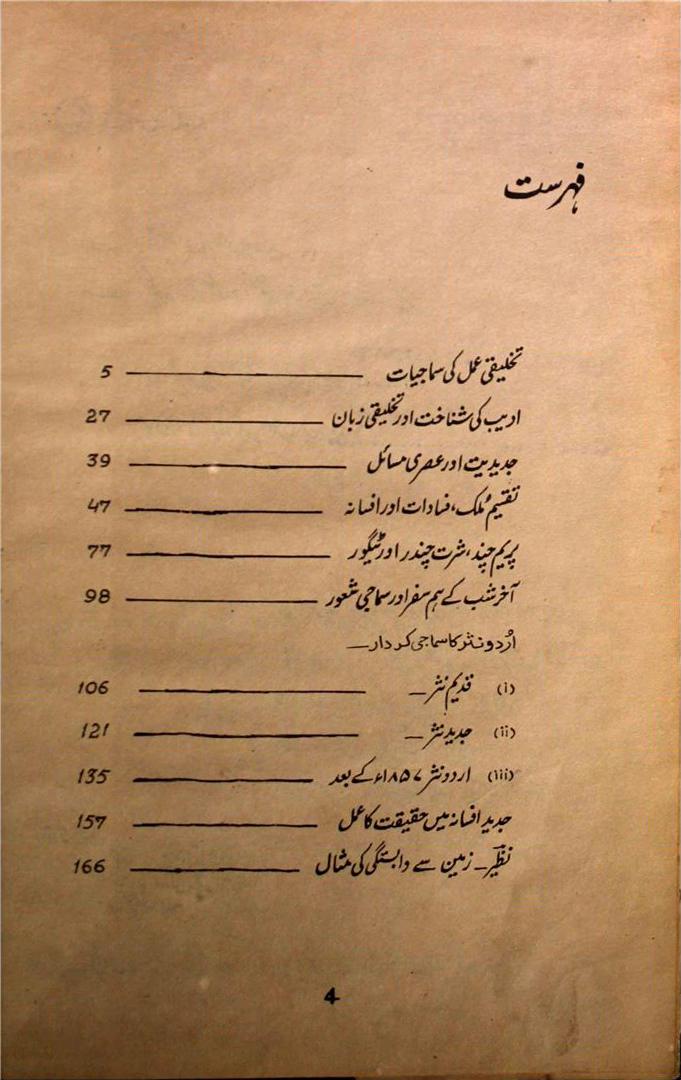 فہرست
تخلیقی عمل کی سماجیات ـــــ 5
ادیب کی شناخت اور تخلیقی زبان ـــــ 27
جدیدیت اور عصری مسائل ـــــ 39
تقسیمِ مُلک، فسادات اور افسانہ ـــــ 47
پریم چند، شرت چندر اور ٹیگور ـــــ 77
آخر شب کے ہم سفر اور سماجی شعور ـــــ 98
اُردو نثر کا سماجی کردار ـــ
(i) قدیم نثر ـــــ 106
(ii) جدید نثر ـــــ 121
(iii) اردو نثر ۱۸۵۷ء کے بعد ـــــ 135
جدید افسانہ میں حقیقت کا عمل ـــــ 157
نظیر ـ زمین سے وابستگی کی مثال ـــــ 166
4